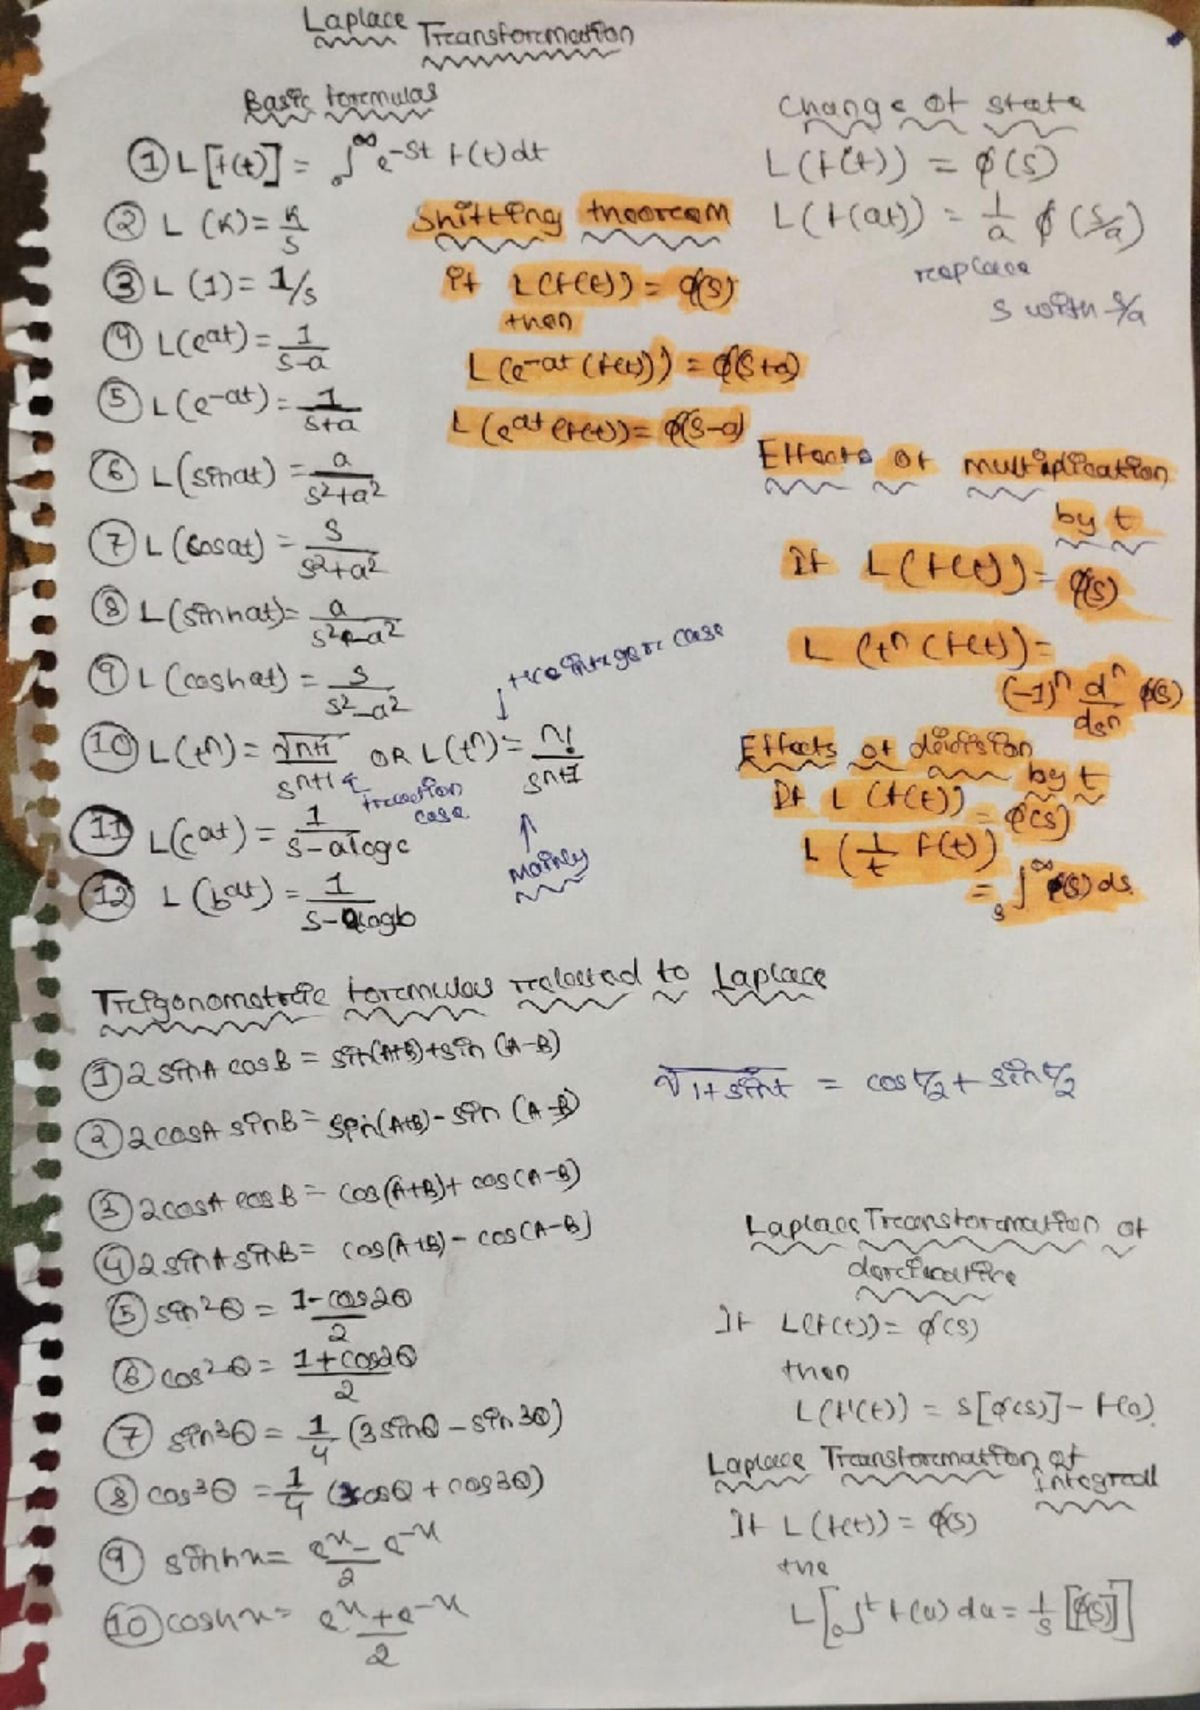 Laplace Transformation
Basic formulas
① L[f(t)] = ₀∫^∞ e^-st f(t) dt
② L (K) = K/s
③ L (1) = 1/s
④ L(e^at) = 1/(s-a)
⑤ L(e^-at) = 1/(s+a)
⑥ L(sinat) = a/(s²+a²)
⑦ L(cosat) = s/(s²+a²)
⑧ L(sinhat) = a/(s²-a²)
⑨ L(coshat) = s/(s²-a²)
+ve integer case
⑩ L(t^n) = √n+1/s^n+1 OR L(t^n) = n!/s^n+1
fraction case
Mainly
⑪ L(c^at) = 1/(s-alogc)
⑫ L(b^at) = 1/(s-alogb)
Shifting theorem
if L(f(t)) = φ(s)
then
L(e^-at (f(t))) = φ(s+a)
L(e^at (f(t)) = φ(s-a)
Change of state
L(f(t)) = φ(s)
L(f(at)) = 1/a φ(s/a)
replace
s with s/a
Effects of multiplication
by t
If L(f(t)) = φ(s)
L (t^n (f(t)) =
(-1)^n d^n/ds^n φ(s)
Effects of division
by t
If L (f(t)) = φ(s)
L (1/t f(t))
= s∫^∞ φ(s) ds
Trigonometric formulas related to Laplace
① 2 sinA cosB = sin(A+B)+sin (A-B)
② 2cosA sinB = sin(A+B)-sin (A-B)
③ 2cosA cosB = cos(A+B)+ cos(A-B)
④ 2sinA sinB = cos(A+B) - cos(A-B)
⑤ sin²θ = (1-cos2θ)/2
⑥ cos²θ = (1+cos2θ)/2
⑦ sin³θ = 1/4 (3sinθ - sin3θ)
⑧ cos³θ = 1/4 (3cosθ + cos3θ)
⑨ sinhx = (e^x - e^-x)/2
⑩ coshx = (e^x + e^-x)/2
√1+sint = cos t/2 + sin t/2
Laplace Transformation of
dercivative
If L(f(t)) = φ(s)
then
L(f'(t)) = s[φ(s)] - f(0)
Laplace Transformation of
integrall
If L(f(t)) = φ(s)
the
L[₀∫^t f(u) du = 1/s [φ(s)]]